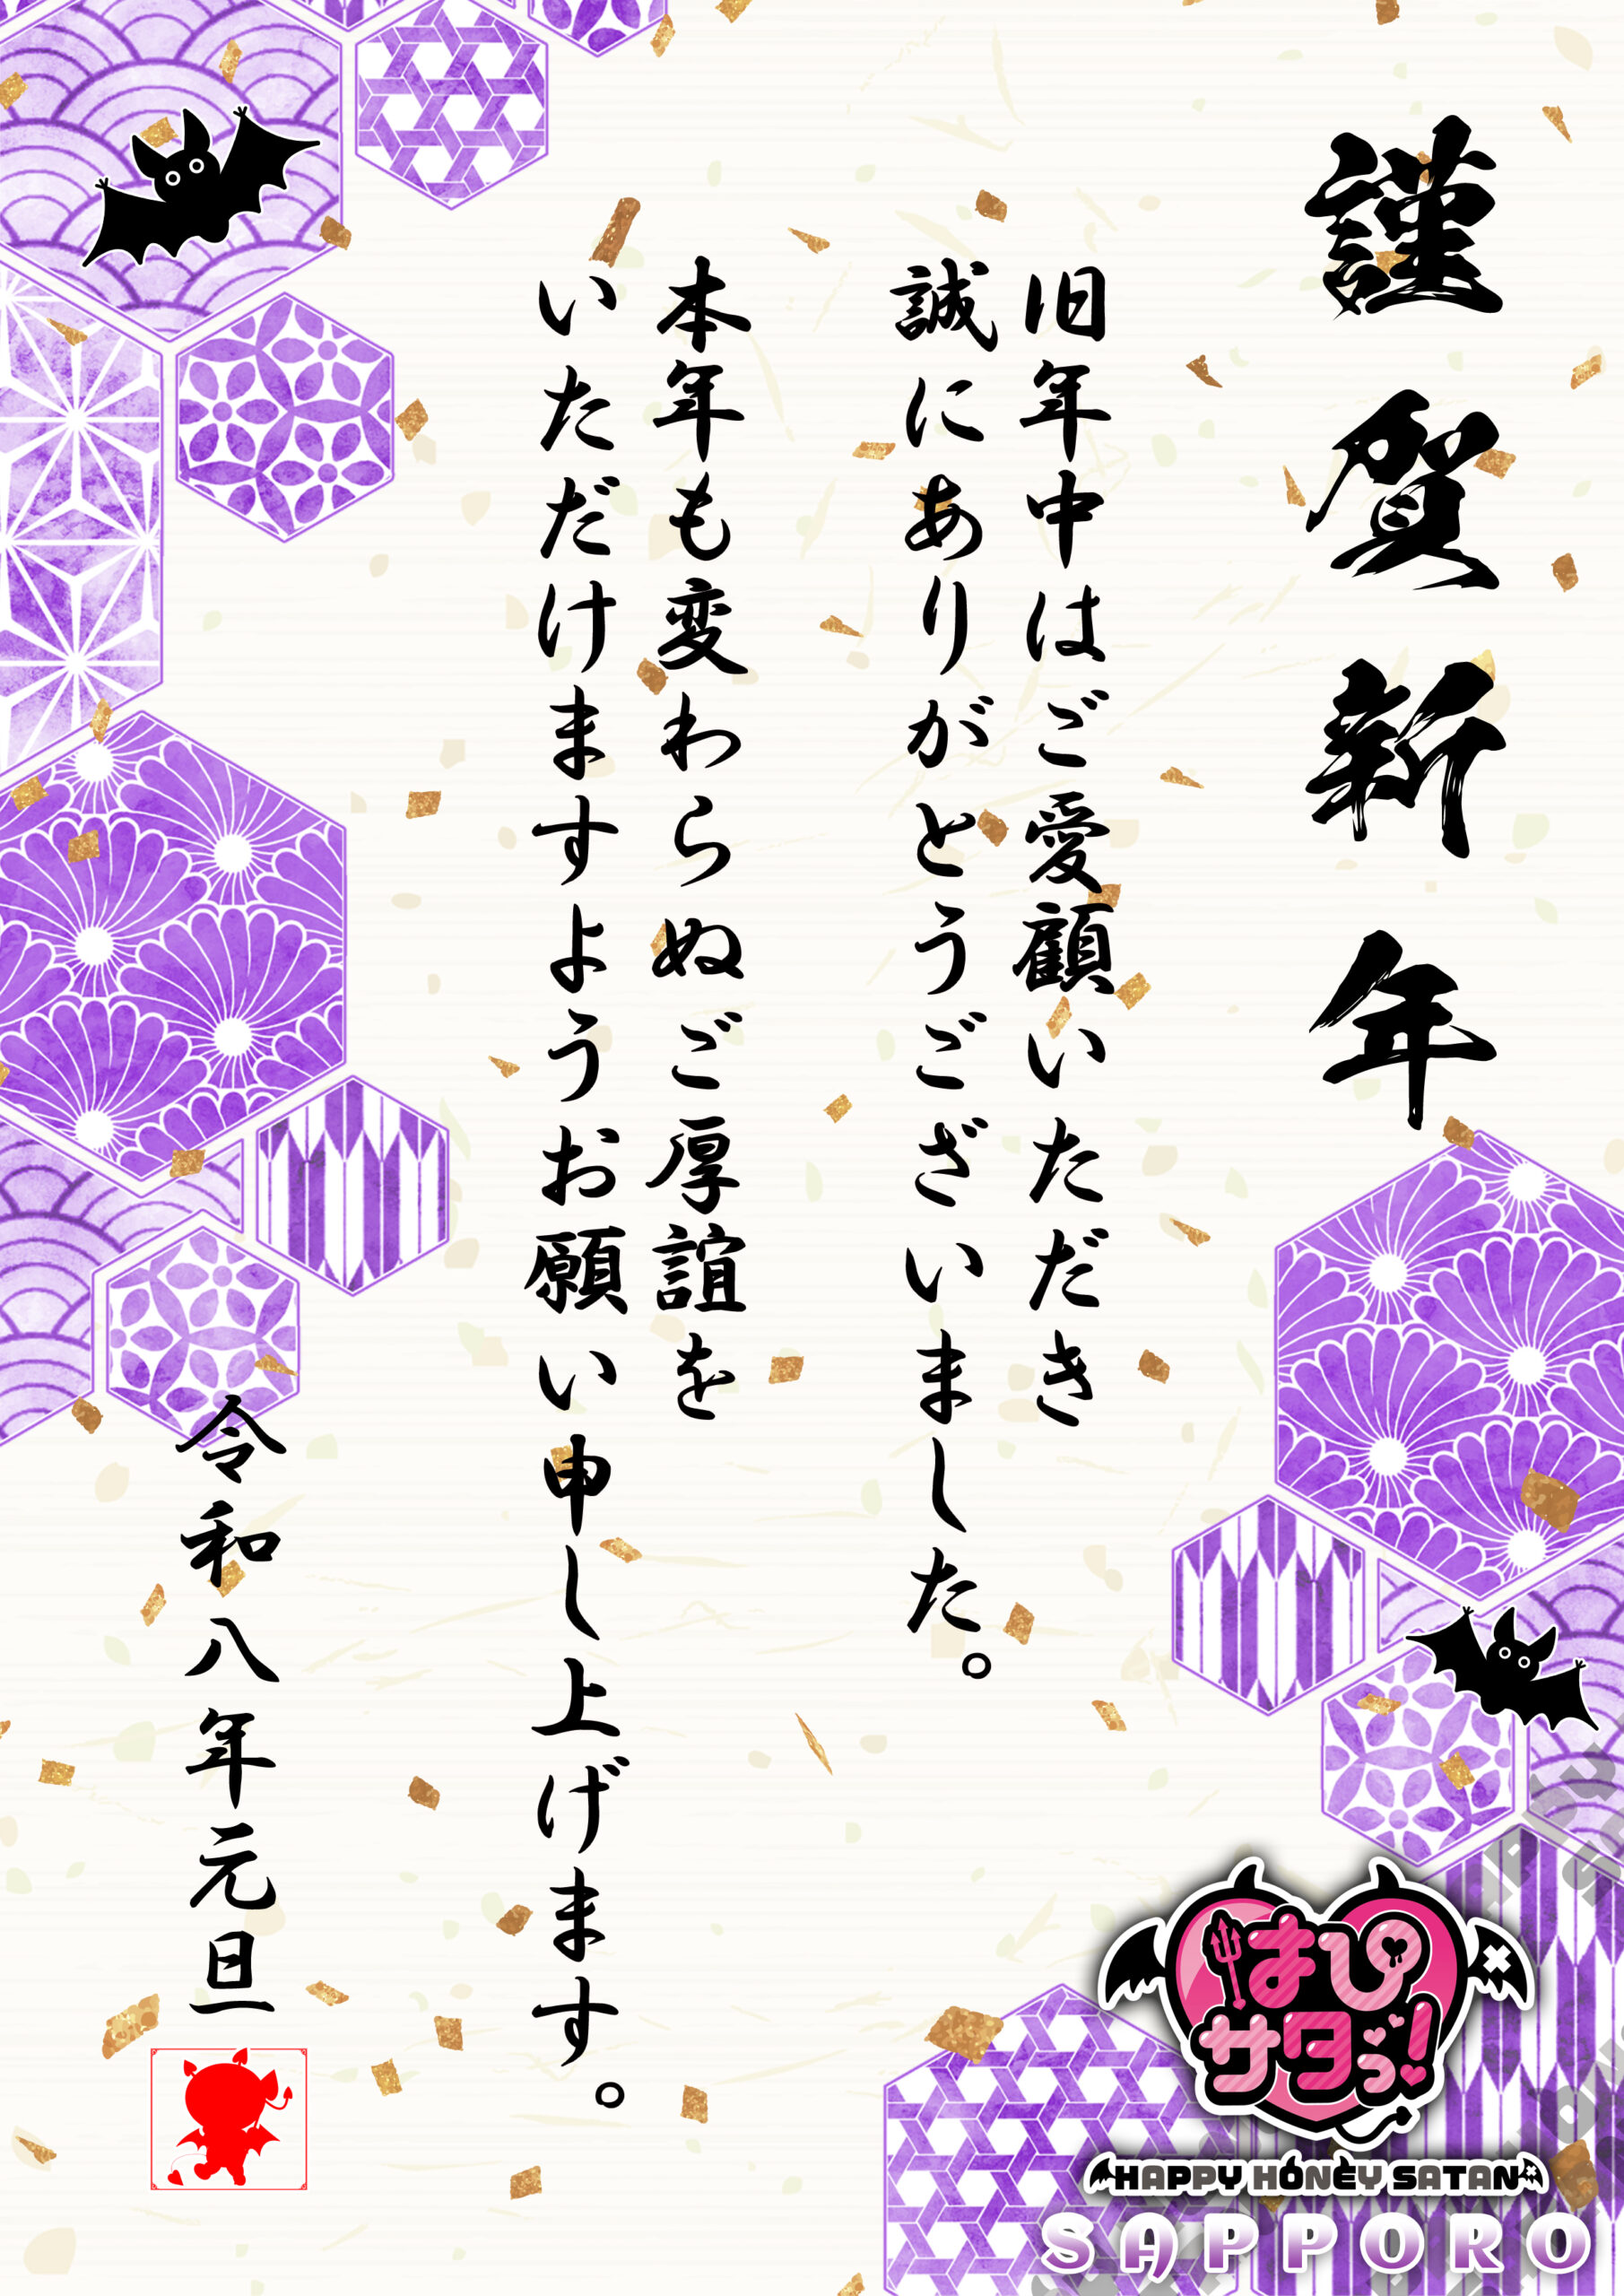 謹賀新年
旧年中はご愛顧いただき
誠にありがとうございました。
本年も変わらぬご厚誼を
いただけますようお願い申し上げます。
令和八年元旦
はぴ
サタっ!
HAPPY HONEY SATAN
SAPPORO